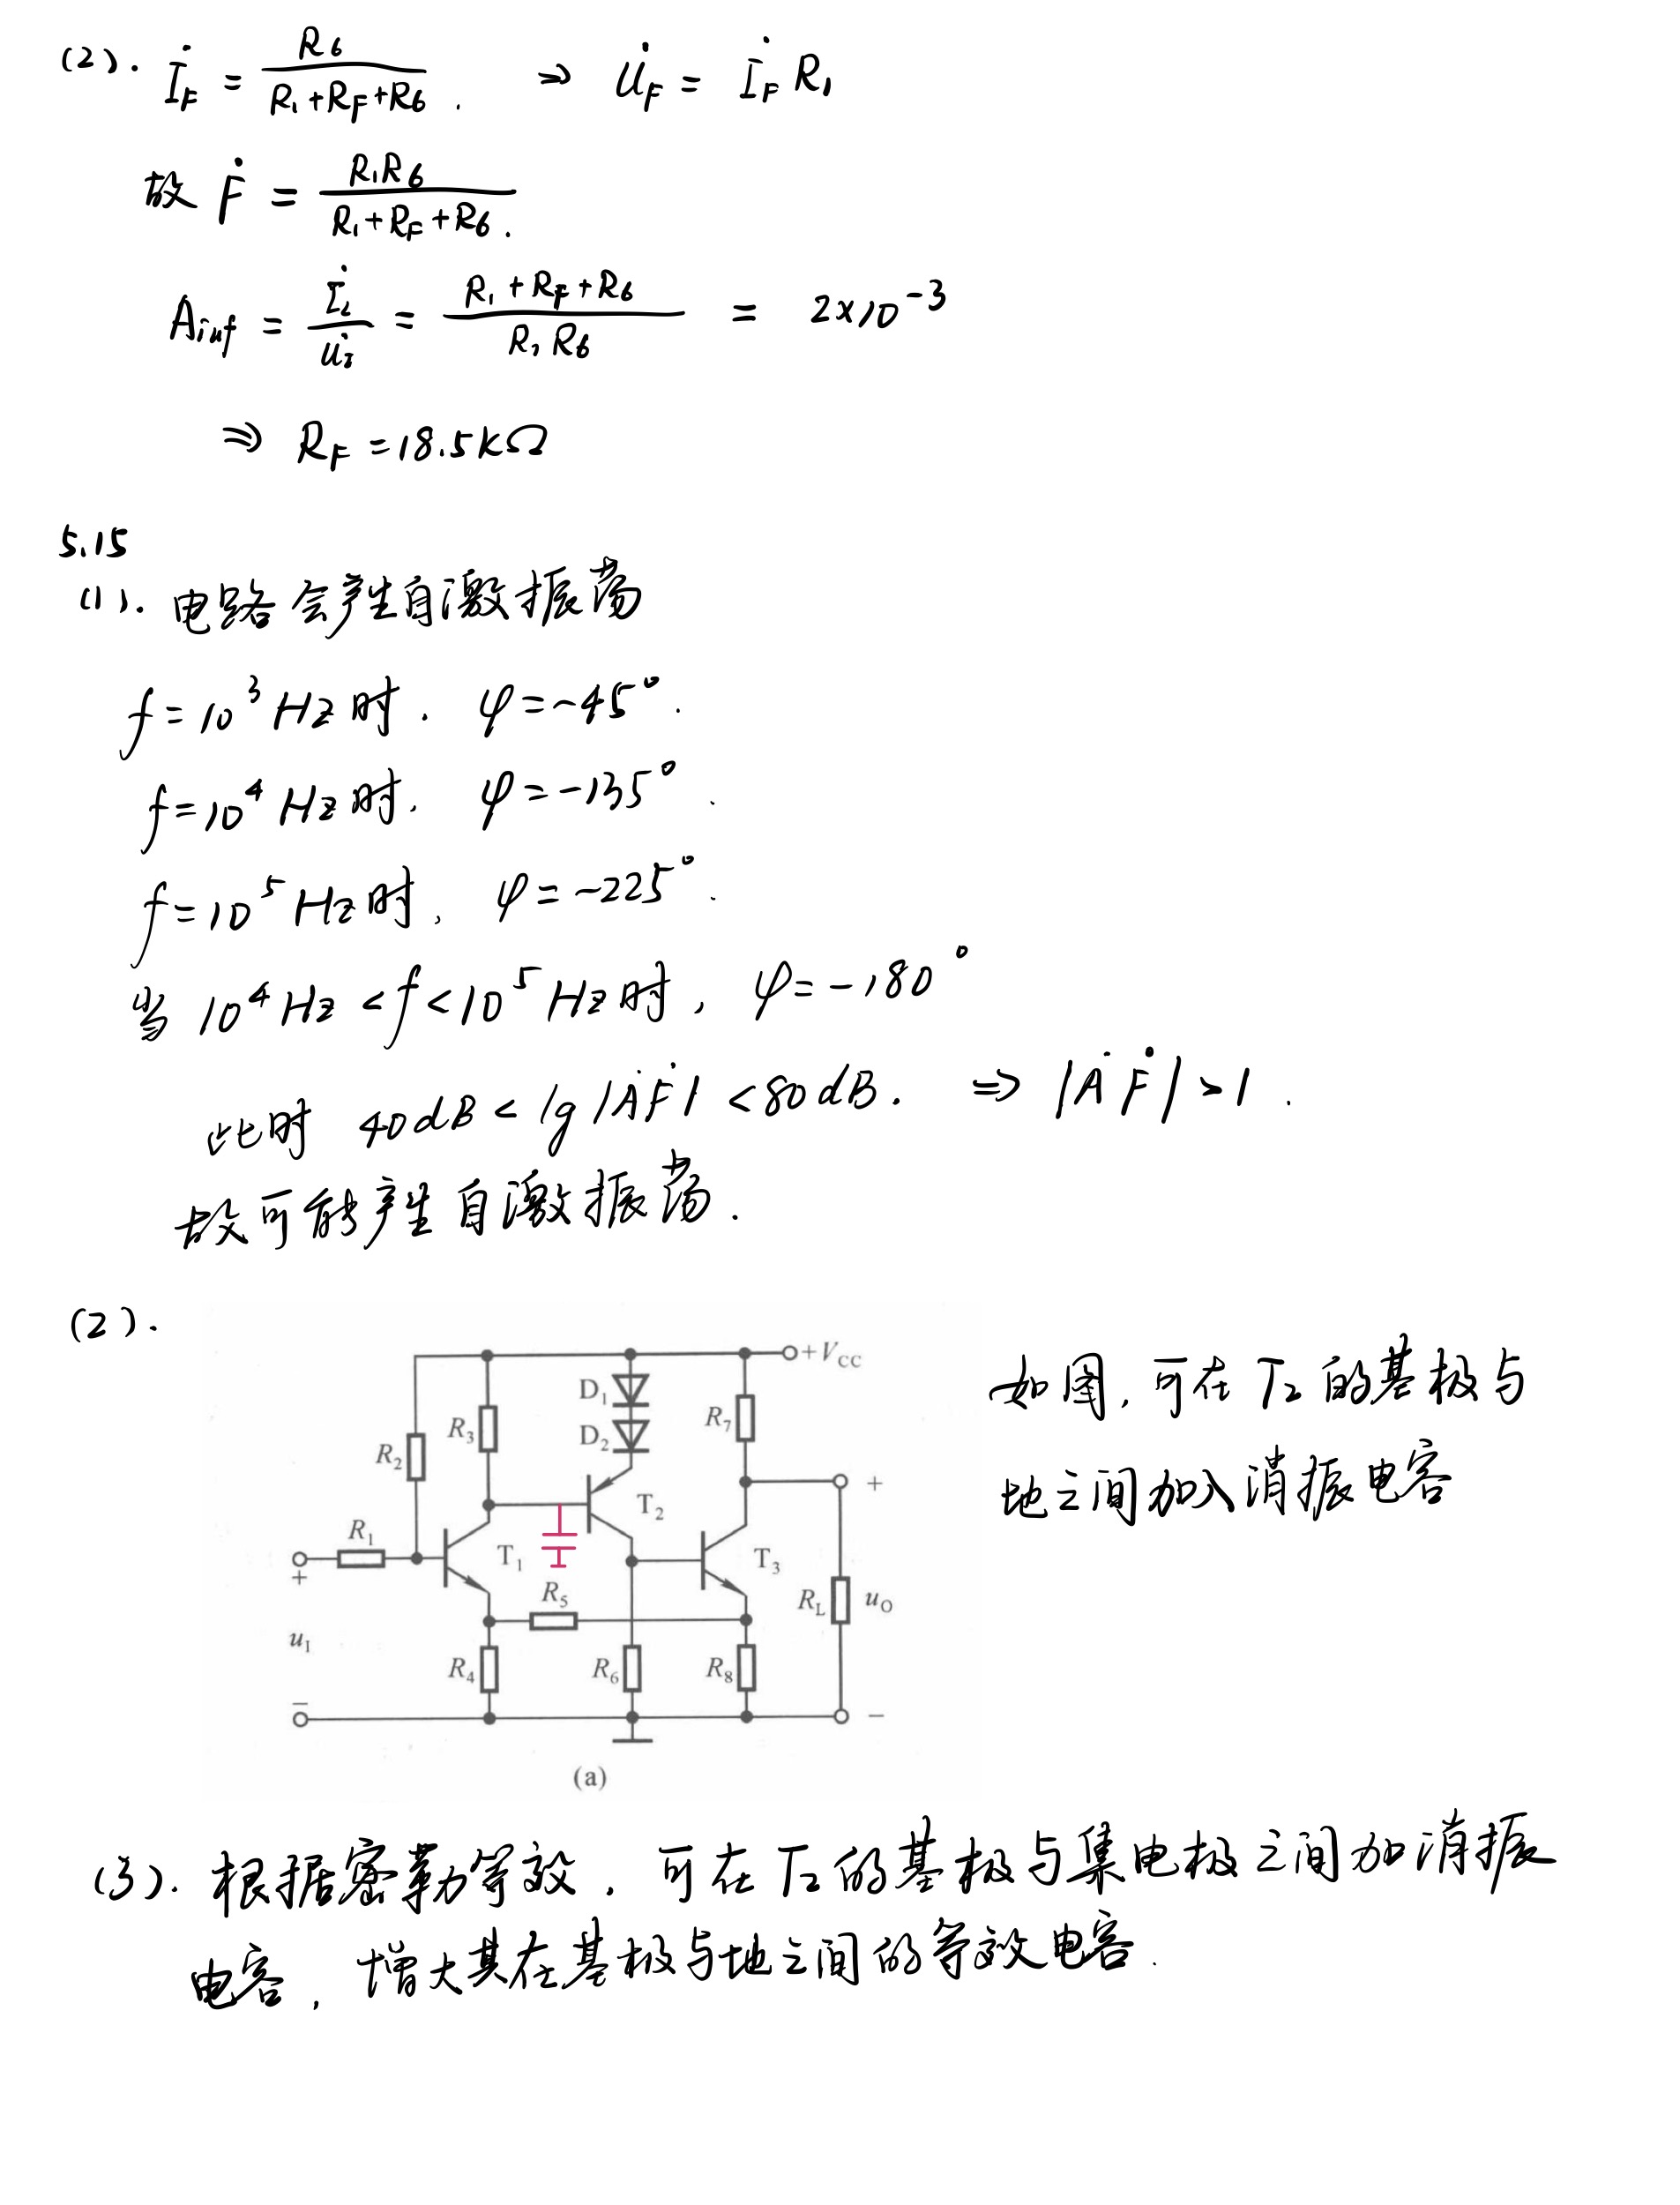 (2). İ_F = R6 / (R1+RF+R6). ⇒ U̇_F = İ_F R1
故 Ḟ = R1R6 / (R1+RF+R6).
Aiuf = İL / U̇I = (R1+RF+R6) / (R1R6) = 2×10^-3
⇒ RF = 18.5kΩ
5.15
(1). 电路会产生自激振荡
f=10^3 Hz时. φ=-45°.
f=10^4 Hz时, φ=-135°.
f=10^5 Hz时, φ=-225°.
当 10^4Hz<f<10^5Hz时, φ=-180°
此时 40dB < lg|ȦḞ| < 80dB. ⇒ |ȦḞ|>1.
故可能产生自激振荡.
(2).
如图,可在T2的基极与
地之间加入消振电容
+VCC
D1
R7
R3
D2
R2
+
T2
R1
T1
T3
+
R5
RL
uO
uI
R4
R6
R8
−
−
(a)
(3). 根据密勒等效, 可在T2的基极与集电极之间加消振
电容, 增大其在基极与地之间的等效电容.